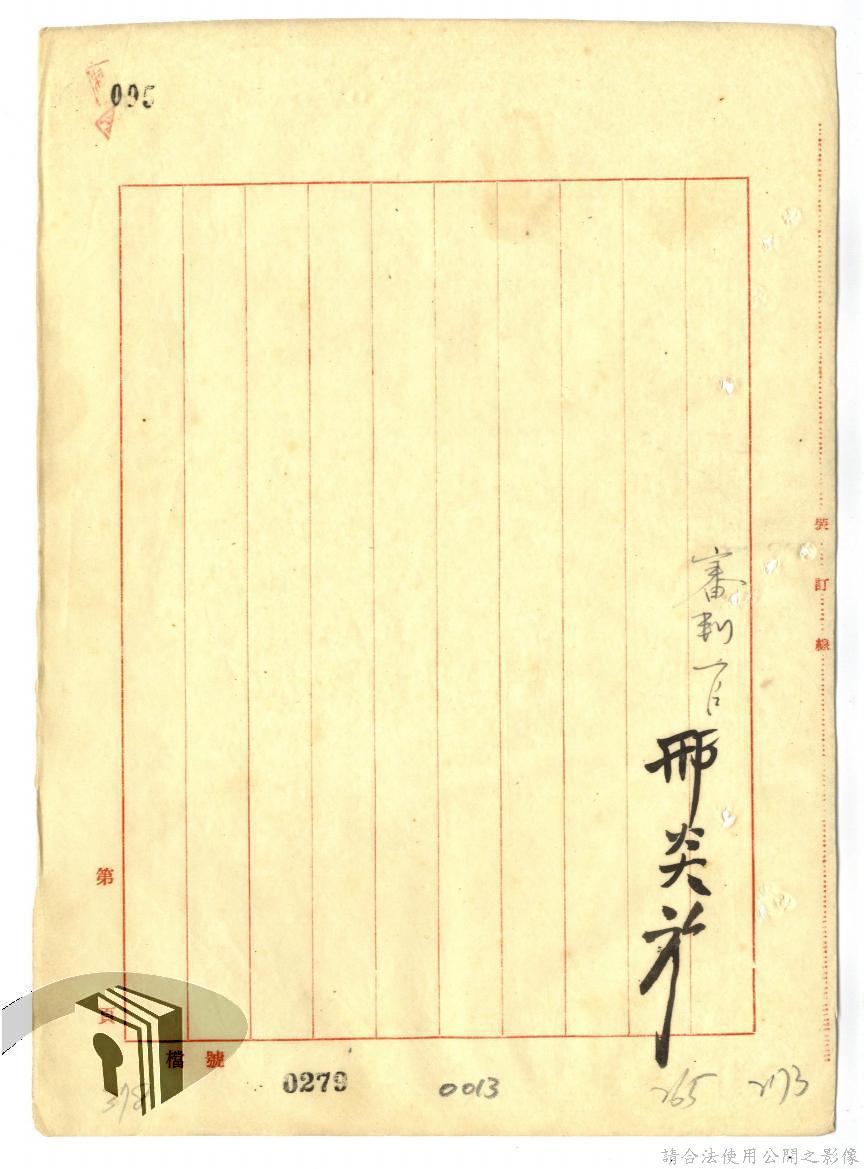 095
裝訂線
審判官
邢炎初
第
頁
檔號
0279
0013
265
273
請合法使用公開之影像